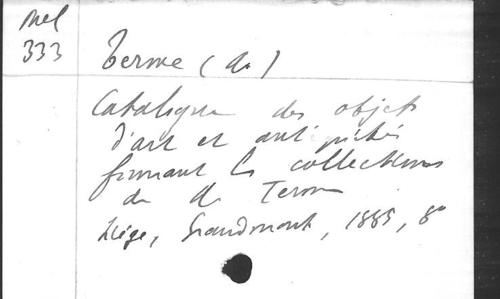 Mel
333
Terme (de)
Catalogue des objets
d'art et antiquités
formant les collections
de de Terme
Liége, Grandmont, 1885, 8°